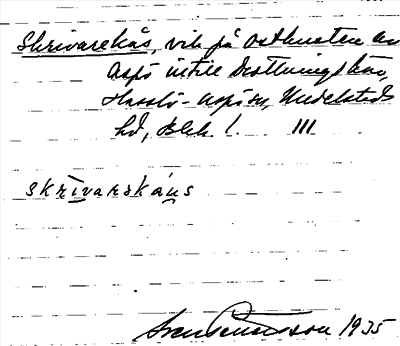 Skrivarekås, vik på ostkusten av
Aspö intill Drottningskär,
Hasslö-Aspös, Medelsteds
hd, Blek. l. III
skrivarskåus
1935